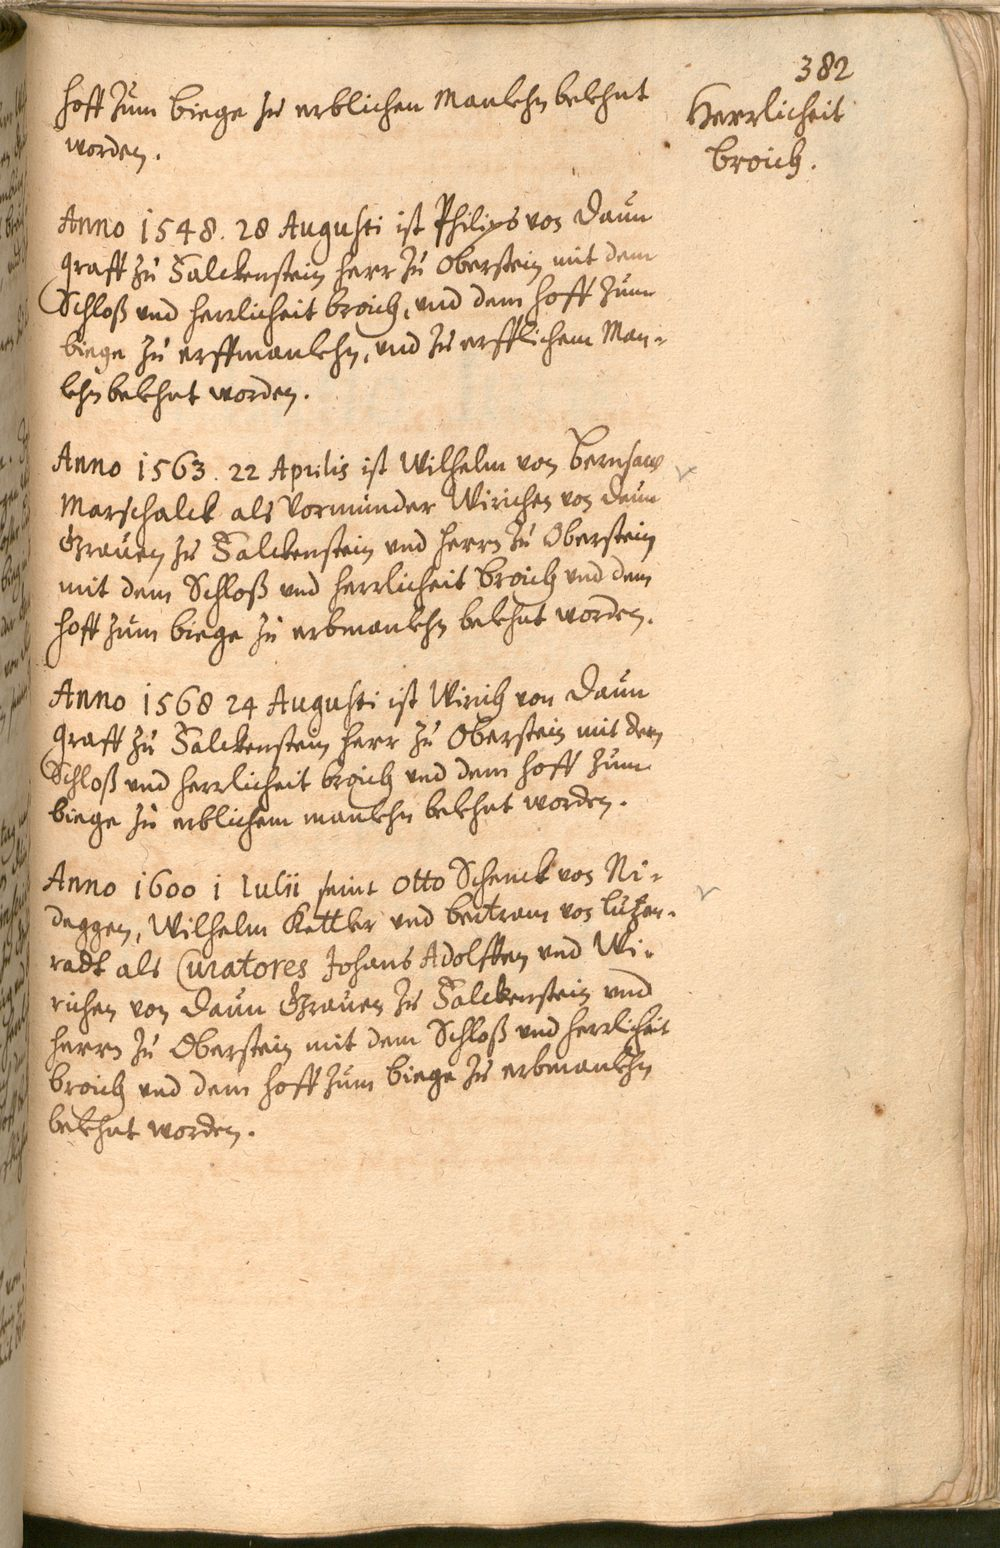 382
Herrlicheit
broich.
hoff zum biege zu erblichen Manlehn belehnt
worden.
Anno 1548. 28 Augusti ist Philips von Daun
graff zu Falckenstein herr zu Oberstein mit dem
Schloß vnd herrlicheit broich, vnd dem hoff zum
biege zu erffmanlehn, vnd zu erfflichem Man-
lehn belehnt worden.
Anno 1563. 22 Aprilis ist Wilhelm von Bernsaw
Marschalck als Vormunder Wirichen von Daun
Grauen zu Falckenstein vnd herrn zu Oberstein
mit dem Schloß vnd herrlicheit Broich vnd dem
hoff zum biege zu erbmanlehn belehnt worden.
Anno 1568 24 Augusti ist Wirich von Daun
graff zu Falckenstein herr zu Oberstein mit dem
Schloß vnd herrlicheit broich vnd dem hoff zum
biege zu erblichem manlehn belehnt worden.
Anno 1600 1 Iulii seint Otto Schenck von Ni-
deggen, Wilhelm Kettler vnd bertram von Lutzen-
radt als Curatores Johans Adolffen vnd Wi-
richen von Daun Grauen zu Falckenstein vnd
herrn zu Oberstein mit dem Schloß vnd herrlicheit
broich vnd dem hoff zum biege zu erbmanlehn
belehnt worden.